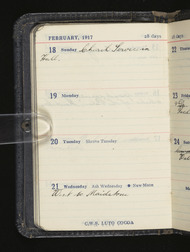 FEBRUARY, 1917 28 days
18 Sunday Church Service in
Hall.
19 Monday
20 Tuesday Shrove Tuesday
21 Wednesday Ash Wednesday New Moon
Went to Maidstone
C.W.S. LUTO COCOA
22
23
24